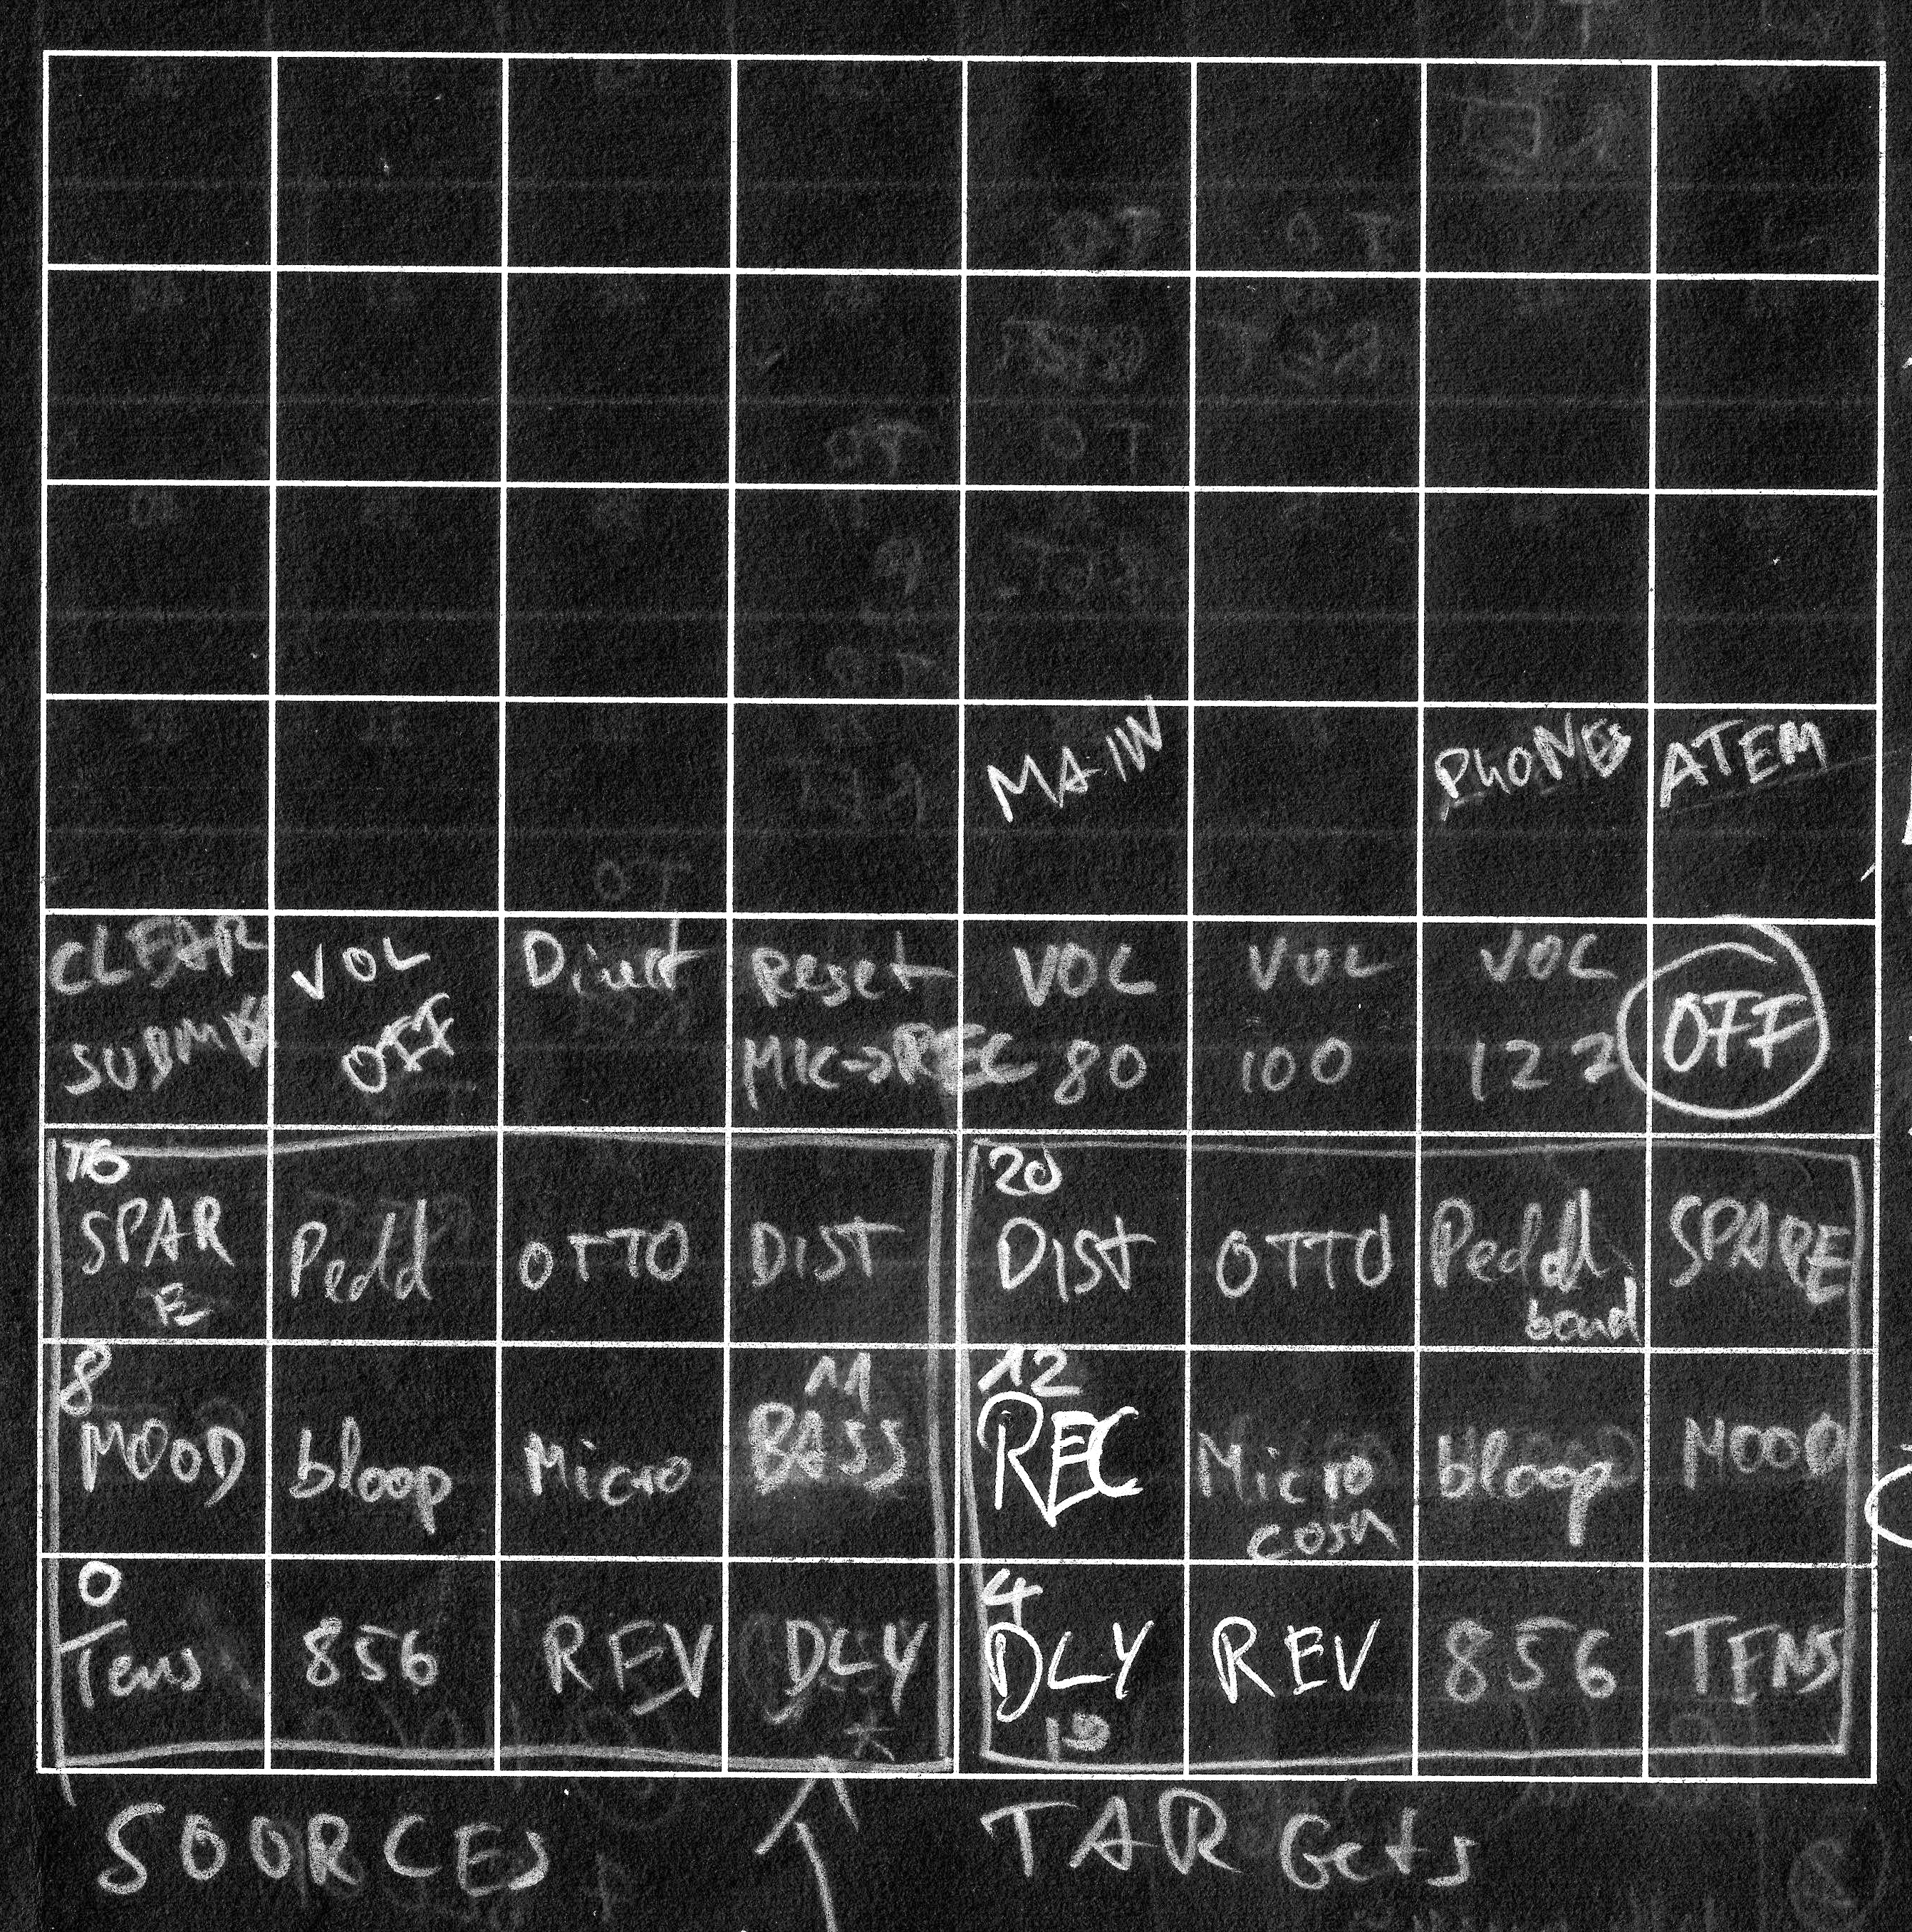 MAIN PHONES ATEM
CLEAR VOL Direct Reset VOL VOL VOL OFF
OFF MIC->REC 80 100 122
16 20
SPAR Pedal OTTO DIST DIST OTTO Pedal SPARE
E board
8 11 12
MOOD bloop Micro BASS REC Micro bloop MOOD
cosm
0 4
Tens 856 REV DLY DLY REV 856 TENS
19
SOURCES TARGets